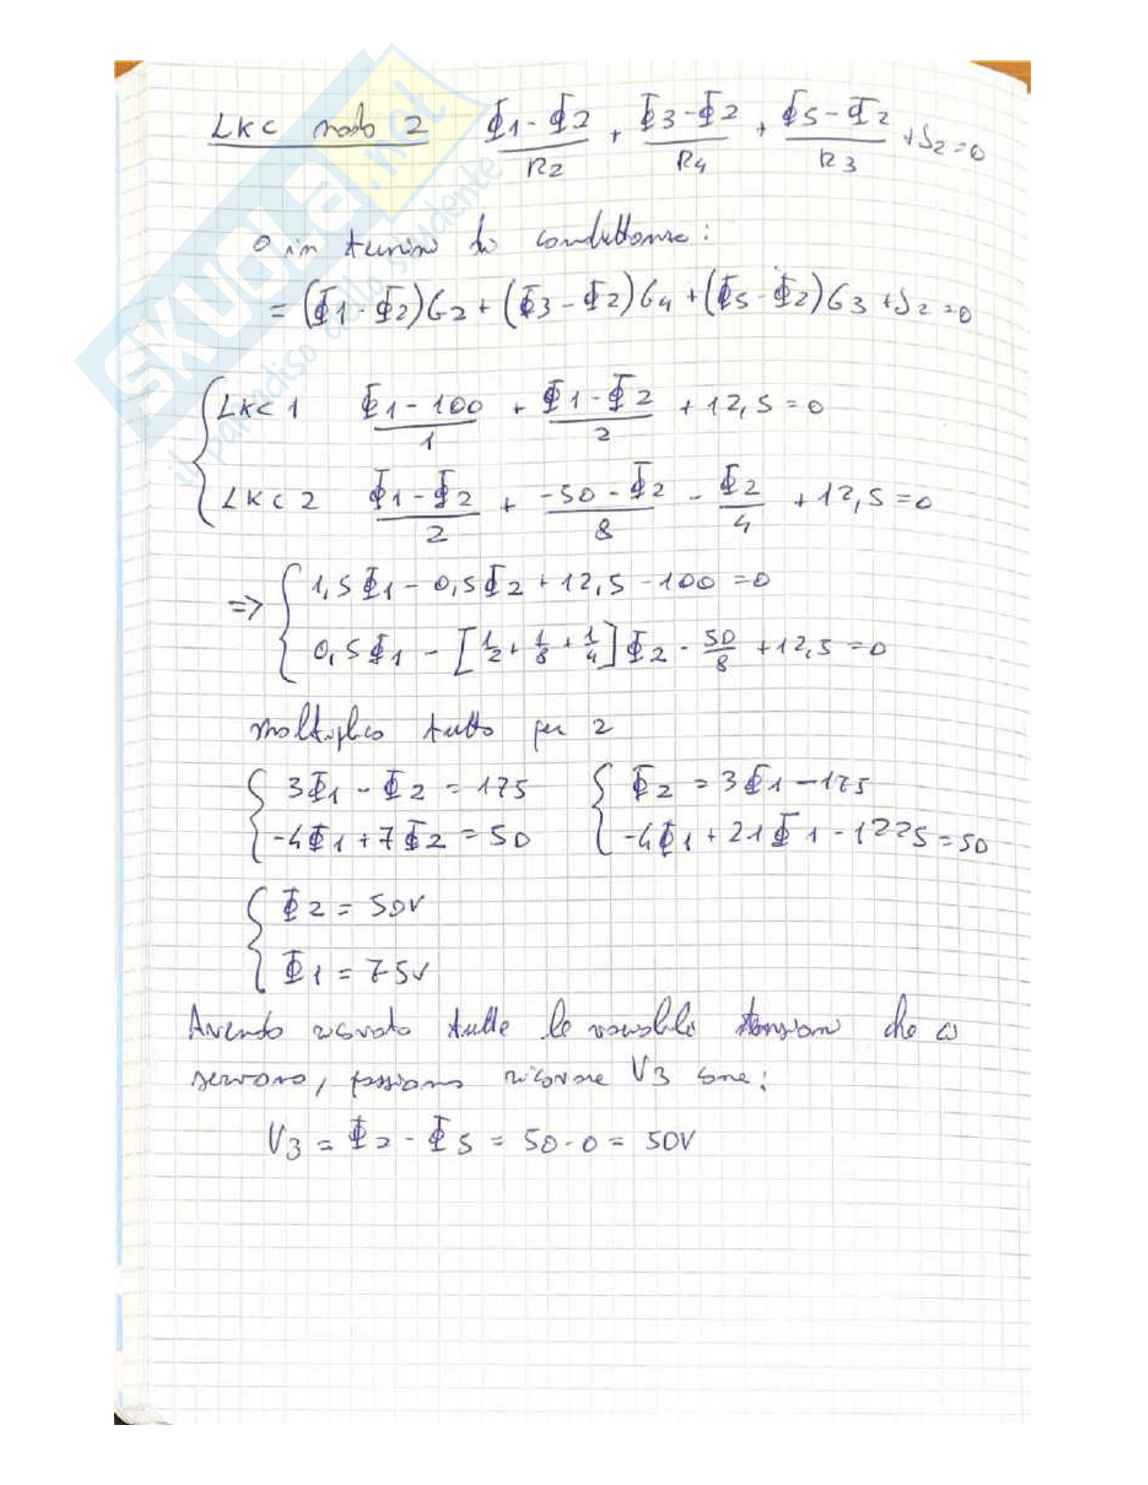 LKC nodo 2 (Φ1-Φ2)/R2 + (Φ3-Φ2)/R4 + (Φ5-Φ2)/R3 + J2=0
o in termini di conduttanze:
= (Φ1-Φ2)G2 + (Φ3-Φ2)G4 + (Φ5-Φ2)G3 + J2=0
{ LKC 1 (Φ1-100)/1 + (Φ1-Φ2)/2 + 12,5=0
LKC 2 (Φ1-Φ2)/2 + (-50-Φ2)/8 - Φ2/4 + 12,5=0
=> { 1,5Φ1 - 0,5Φ2 + 12,5 - 100 = 0
0,5Φ1 - [1/2 + 1/8 + 1/4]Φ2 - 50/8 + 12,5 = 0
moltiplico tutto per 2
{ 3Φ1 - Φ2 = 175 { Φ2 = 3Φ1 - 175
-4Φ1 + 7Φ2 = 50 -4Φ1 + 21Φ1 - 1225 = 50
{ Φ2 = 50V
Φ1 = 75V
Avendo ricavato tutte le variabili tensioni che ci
servono, possiamo ricavare V3 come:
V3 = Φ2 - Φ5 = 50-0 = 50V
SKUOLA.net
il paradiso dello studente